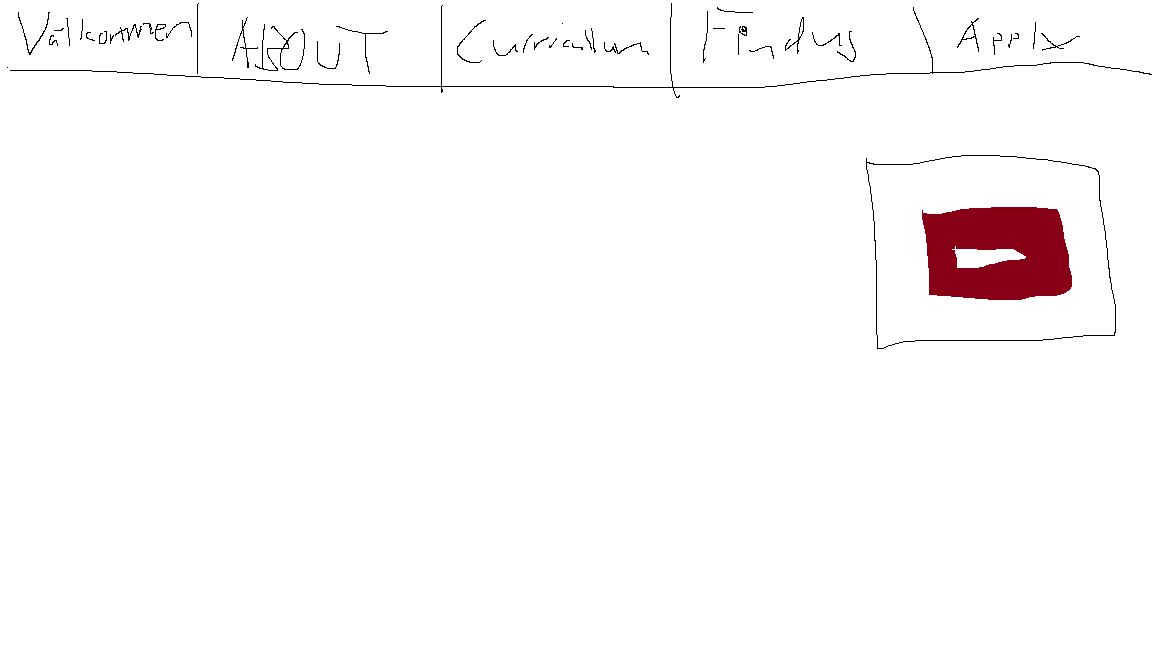 Välkommen ABOUT Curriculum Find us Apply